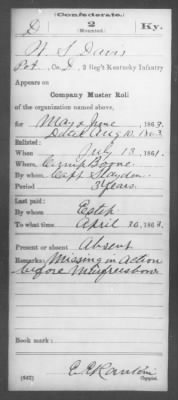 (Confederate.)
D 2 Ky.
(Mounted.)
W. S. Davis
Pvt., Co. D, 2 Reg't Kentucky Infantry
Appears on
Company Muster Roll
of the organization named above,
for May & June, 1863.
Dated Aug 10, 1863
Enlisted:
When July 13, 1861.
Where Camp Boone
By whom Capt Slayden
Period 3 years.
Last paid:
By whom Estep
To what time April 30, 1863.
Present or absent Absent
Remarks: Missing in action
before Murfreesboro
Book mark:
(642) Copyist.